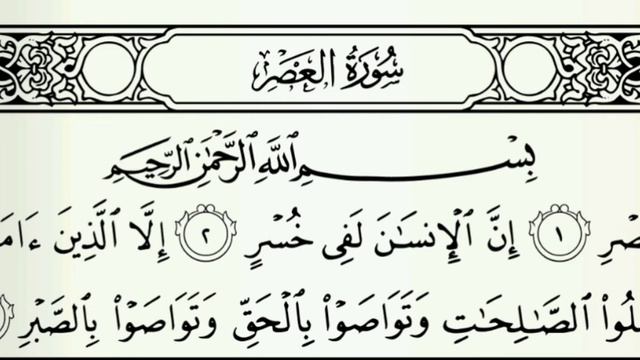 سُورَةُ العَصْرِ
بِسْمِ ٱللَّهِ ٱلرَّحْمَٰنِ ٱلرَّحِيمِ
صْرِ ١ إِنَّ ٱلْإِنسَٰنَ لَفِى خُسْرٍ ٢ إِلَّا ٱلَّذِينَ ءَامَ
لُوا۟ ٱلصَّٰلِحَٰتِ وَتَوَاصَوْا۟ بِٱلْحَقِّ وَتَوَاصَوْا۟ بِٱلصَّبْرِ